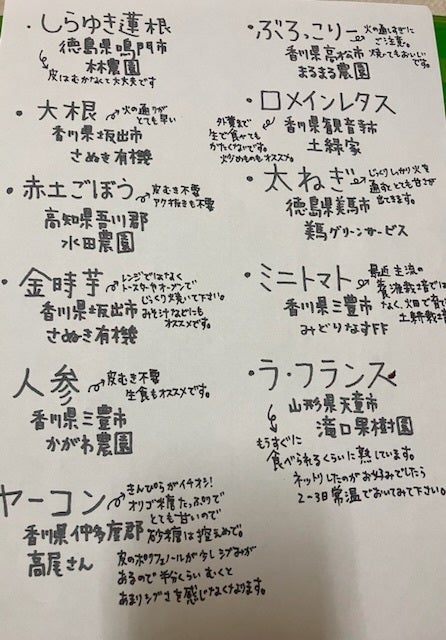 ・しらゆき蓮根
徳島県鳴門市
林農園
皮はむかなくて大丈夫です
・大根
火の通りが
とても早い
香川県坂出市
さぬき有機
・赤土ごぼう
皮むき不要
アク抜きも不要
高知県吾川郡
水田農園
・金時芋
レンジではなく
トースターやオーブンで
じっくり焼いて下さい。
みそ汁などにも
オススメです。
香川県坂出市
さぬき有機
人参
皮むき不要
生食もオススメです。
香川県三豊市
かがわ農園
ヤーコン
きんぴらがイチオシ!
オリゴ糖たっぷりで
とても甘いので
砂糖は控えめで。
香川県仲多度郡
高尾さん
皮のポリフェノールが少しシブみが
あるので半分くらいむくと
あまりシブさを感じなくなります。
・ぶろっこりー
火の通しすぎに
ご注意。
焼いてもおいしい
です。
香川県高松市
まるまる農園
・ロメインレタス
外葉まで
生で食べても
かたくないです。
炒めものもオススメ。
香川県観音寺市
土緑家
・太ねぎ
じっくりしっかり火を
通すととても甘さが
出てきます。
徳島県美馬市
美馬グリーンサービス
・ミニトマト
最近主流の
養液栽培では
なく、畑で育て
土耕栽培
香川県三豊市
みどりなすFF
・ラ・フランス
山形県天童市
滝口果樹園
もうすぐに
食べられるくらいに熟しています。
ネットリしたのがお好みでしたら
2~3日常温でおいてみて下さい。